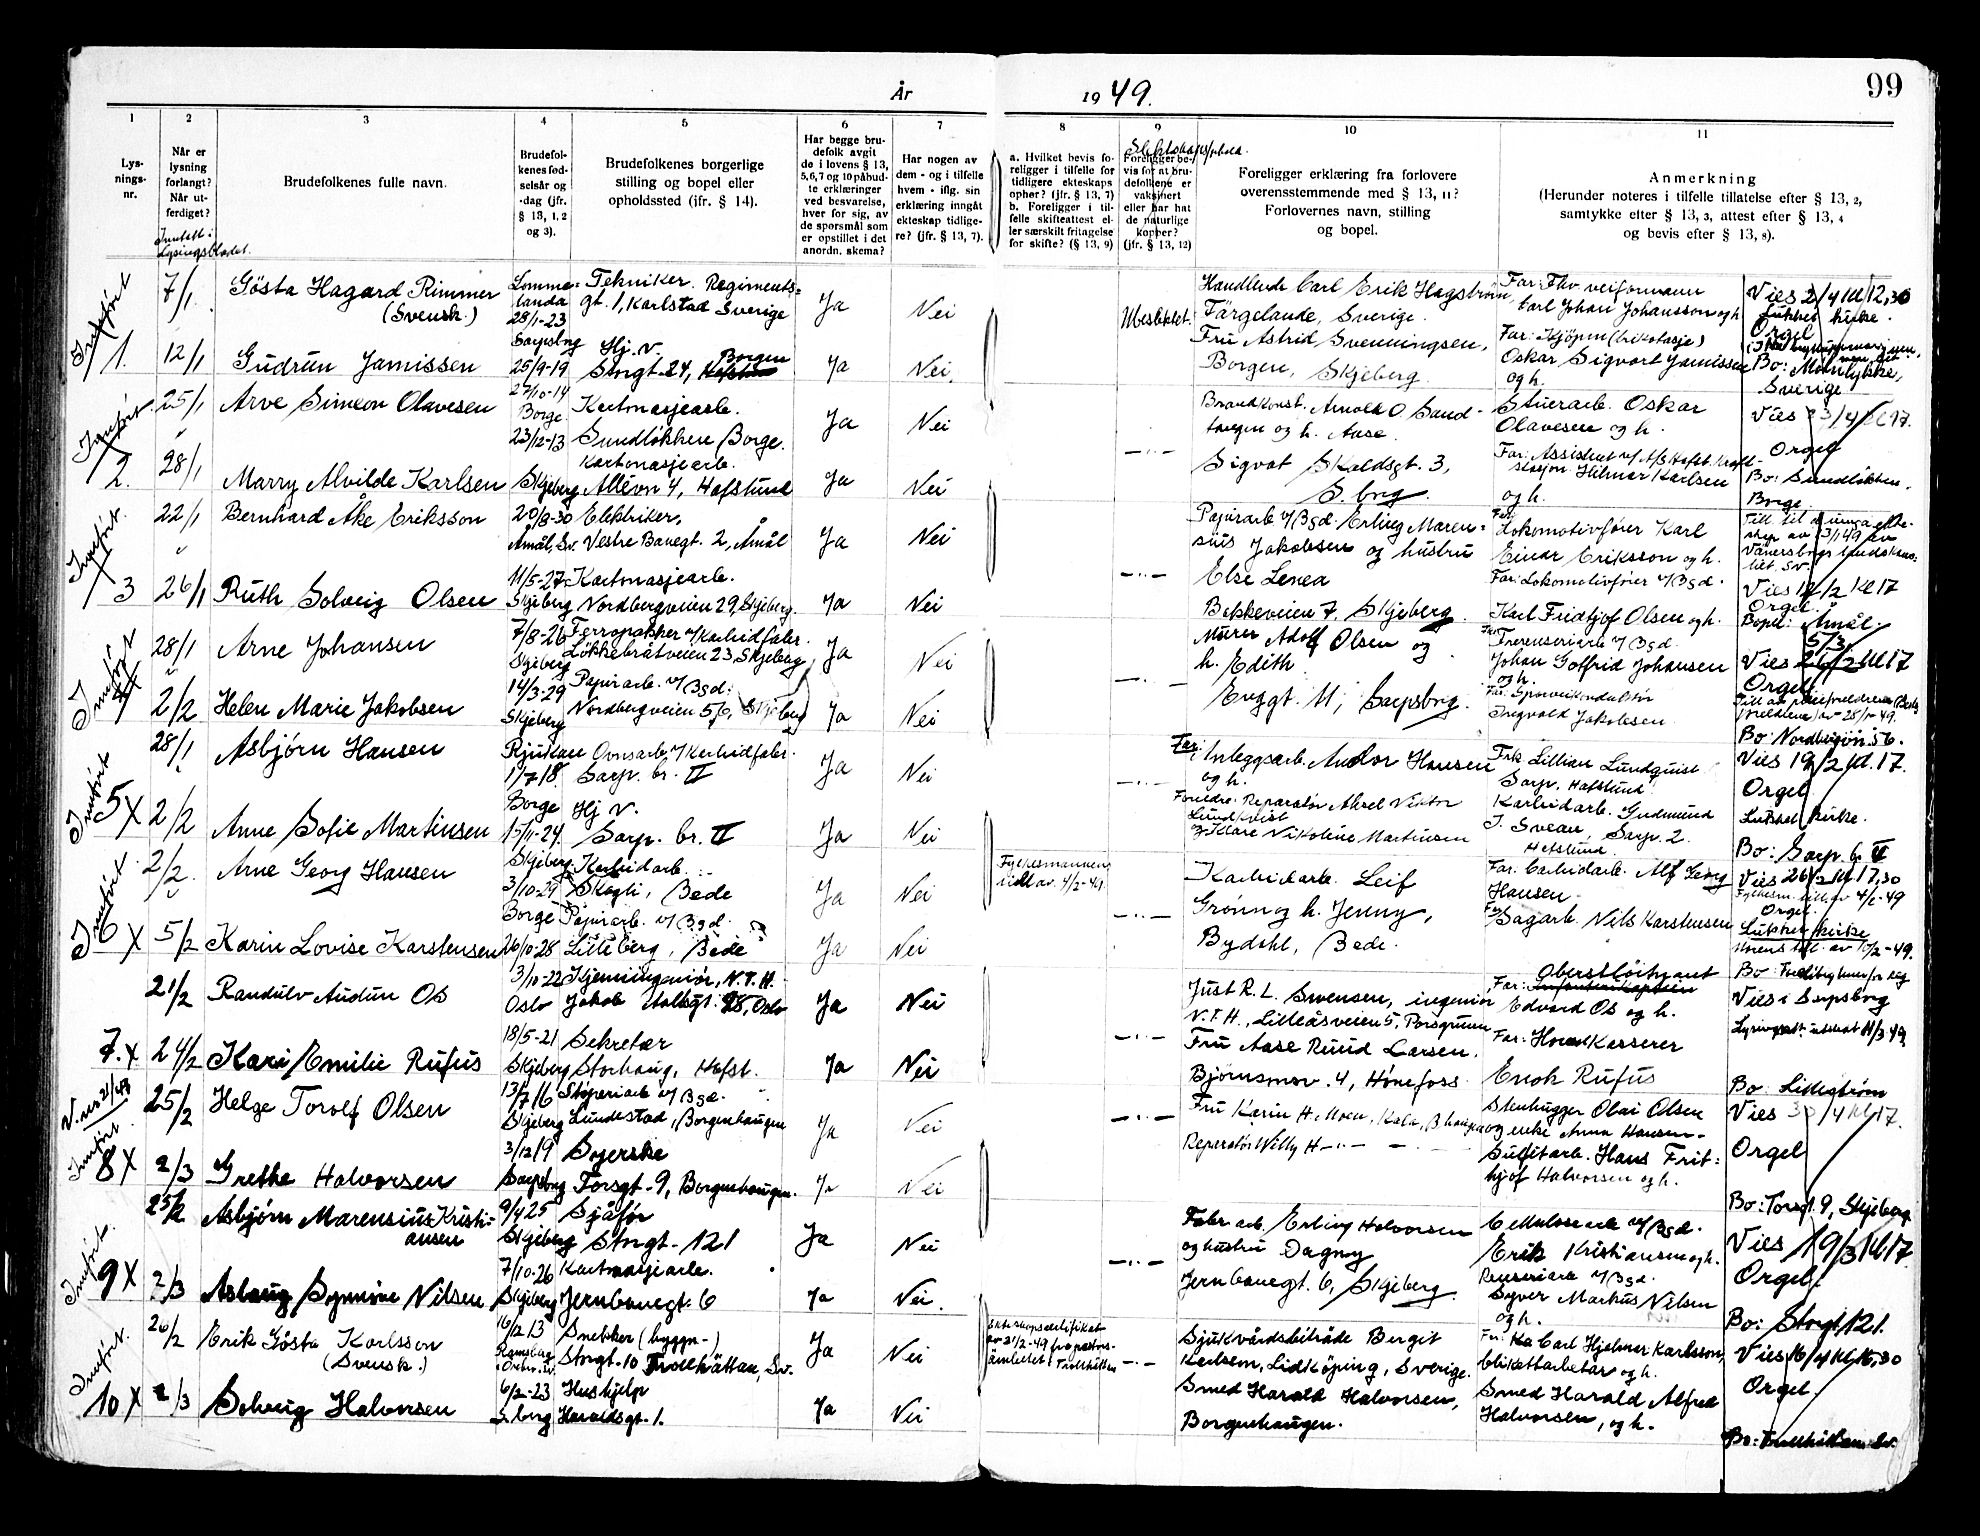 99
År 1949.
1 2 3 4 5 6 7 8 9 10 11
Lys-
nings-
nr.
Når er
lysning
forlangt?
Når ut-
ferdiget?
Inntatt i
Lysingsbladet.
Brudefolkenes fulle navn.
Brudefol-
kenes fød-
selsår og
-dag (jfr.
§ 13, 1, 2
og 3).
Brudefolkenes borgerlige
stilling og bopel eller
opholdssted (jfr. § 14).
Har begge bru-
defolk avgit
de i lovens § 13,
5, 6, 7 og 10 påbud-
te erklæringer
ved besvarelse,
hver for sig, av
de spørsmål som
er opstillet i det
anordn. skema?
Har nogen av
dem - og i tilfelle
hvem - iflg. sin
erklæring inngått
ekteskap tidlige-
re? (jfr. § 13, 7).
a. Hvilket bevis fo-
religger i tilfelle for
tidligere ekteskaps
opher? (jfr. § 13, 7)
b. Foreligger i til-
felle skifteattest el-
ler særskilt fritagelse
for skifte? (§ 13, 9)
Slektskapsforhold.
Foreligger be-
vis for at bru-
defolkene er
vaksinert
eller har hat
de naturlige
kopper?
(jfr. § 13, 12)
Foreligger erklæring fra forlovere
overensstemmende med § 13, 11?
Forlovernes navn, stilling
og bopel.
Anmerkning
(Herunder noteres i tilfelle tillatelse efter § 13, 2,
samtykke efter § 13, 3, attest efter § 13, 4
og bevis efter § 13, 8).
Innført
1.
7/1 Gösta Hagard Rimmer
(Svensk.)
Lomma-
landa
28/1-23
Tekniker. Regiments-
gt. 1, Karlstad Sverige
Ja Nei Ubeslektet.
Handlende Carl Erik Hagström,
Färgelanda, Sverige.
Far: Fhv veiformann
Carl Johan Johansson og h
Vies 2/4 kl 12,30
Lukket kirke.
Orgel
12/1 Gudrun Jamissen
Sarpsbrg
25/9-19
Hj. v.
Storgt. 24, Borgen
Ja Nei.
Fru Astrid Svenningsen,
Borgen, Skjeberg.
Far: Kjöpm
Oskar Sigvart Jamissen
og h.
Bo:
Sverige
Innført.
2.
25/1 Arve Simeon Olavesen
27/10-14
Borge
Kartonasjearb.
Sundløkken Borge.
Ja Nei
Arnold O Sand-
tangen og h. Aase.
Stuerarb. Oskar
Olavesen og h.
Vies 23/4 kl 17.
Orgel
28/1 Marry Alvilde Karlsen
23/12-13
Skjeberg
Kartonasjearb.
Alléen 4, Hafslund
Ja Nei
Sigvat Skaldsgt. 3,
S.brg.
Far: Assistent v/ A/S Hafsl. Kraft-
stasjon. Hilmar Karlsen
og h.
Bo: Sundløkken,
Borge
Innført.
3
22/1 Bernhard Åke Eriksson
20/8-30
Åmål, Sv.
Elektriker,
Vestre Banegt. 2, Åmål
Ja Nei
Papirarb v/Bgd. Erling Maren-
sius Jakobsen og hustru
Far:
Lokomotivfører Karl
Einar Eriksson og h.
26/1 Ruth Solveig Olsen
11/5-27
Skjeberg
Kartonasjearb.
Nordbergveien 29, Skjeberg.
Ja Nei
Else Lenea
Bekkeveien 7, Skjeberg.
Far: Lokomotivfører v/Bgd.
Karl Fridtjof Olsen og h.
Vies 12/2 kl 17
Orgel.
Bopel: Åmål.
Innført
4
28/1 Arne Johansen
7/8-26
Skjeberg
Ferropakker v/Karbidfabr.
Løkkebråtveien 23, Skjeberg
Ja Nei
Murer Adolf Olsen og
h. Edith
Far:
Johan Gotfrid Johansen
og h.
5/3
Vies 26/2 kl 17
Orgel
2/2 Helen Marie Jakobsen
14/3-29
Skjeberg
Papirarb. v/Bgd.
Nordbergveien 56, Skjeberg
Ja Nei
Evggt. 11, Sarpsborg.
Far: Sporveiskonduktør
Ingvald Jakobsen.
Bo: Nordbergvn. 56.
Innført
5 X
28/1 Asbjørn Hansen
Rjukan
1/7 18.
Ovnsarb. v/Karbidfabr.
Sarp. br. II
Ja Nei
Far: Anleggsarb. Andor Hansen
og h.
Frk Lillian Lundquist
Sarp, Hafslund
Vies 19/2 kl. 17.
Orgel
Lukket kirke.
2/2 Anne Sofie Martinsen
Borge
Hj v.
Sarp. br. II
Ja Nei
Foreldre: Reparatør Aksel Viktor
Lundkvist
og Klare Nikoline Martinsen
Karbidarb. Gudmund
J. Svean, Sarp. 2.
Hafslund.
Bo: Sarp. br. II
Innført
6 X
2/2. Arne Georg Hansen
Skjeberg
3/10-29
Karbidarb.
Skogli, Bede
Ja Nei
Fylkesmannens
till av. 4/2-49.
Karbidarb. Leif
Grönn og h. Jenny,
Far. Carbidarb. Alf Georg
Hansen.
Vies 26/2 kl 17,30
Fylkesm. till. av 4/2-49
Orgel.
Lukket kirke
5/2 Karin Lovise Karstensen
Borge
26/10-28
Papirarb. v/Bgd.
Lilleberg, Bede
Ja Nei
Bydahl, Bede.
Far: Sagarb. Nils Karstensen
7. X
21/2 Randulv Audun Os
3/10-22
Oslo
Kjemiingeniør, N.T.H.
Jakob Aallsgt. 28, Oslo
Ja Nei
Just R. L. Swensen, ingeniør
N.T.H., Lilleåsveien 5, Porsgrunn
Far: Oberstløitnant
Edvard Os og h.
Vies i Sarpsborg
24/2 Kari Emilie Rufus
18/5-21
Skjeberg
Sekretær
Storhaug, Hafsl.
Ja Nei
Fru Aase Ruud Larsen.
Bjørnsmov. 4, Hønefoss
Far: Hovedkasserer
Enok Rufus
Bo: Lillestrøm
Innført
8 X
25/2 Helge Torolf Olsen
13/7 16
Skjeberg
Støperiarb v/Bgd.
Lundestad, Borgenhaugen
Ja Nei
Fru Karin H. Moen, Kala, B.haugen
Stenhugger Olai Olsen
og enke Anna Hansen
Vies 30/4 kl 17.
Orgel
2/3 Grethe Halvorsen
3/12 19
Sarpsborg
Syerske
Torsgt. 9, Borgenhaugen.
Ja Nei
Reparatør Willy H
Sulfitarb. Hans Frit-
hjof Halvorsen og h.
Bo: Torsgt. 9, Skjeberg
Innført.
9 X
25/2 Asbjørn Marensius Kristi-
ansen
9/4 25
Skjeberg
Sjåfør
Storgt. 121
Ja Nei
Fabr arb. Erling Halvorsen
og hustru Dagny
Cellulosearb v/Bgd.
Erik Kristiansen og h.
Vies 19/3 kl 17.
Orgel
2/3 Aslaug Synnöve Nilsen
7/10-26
Skjeberg
Kartonasjearb.
Jernbanegt. 6
Ja Nei.
Jernbanegt. 6, Skjeberg.
Renseriarb v/Bgd.
Syver Markus Nilsen
og h.
Bo: Storgt. 121.
Innført.
10 X
26/2 Erik Gösta Karlsson
(Svensk.)
16/12 13
Snekker (byggn-)
Storgt. 10 Trollhättan, Sv.
Ja Nei
Sjukvårdsbiträde Bergit
Karlsson, Lidköping, Sverige.
Carl Hjelmer Karlsson,
blikkarbetar og h.
Vies 16/4 kl 16,30
Orgel.
2/3 Solveig Halvorsen
6/2-23
S.borg
Hushjelp
Haraldsgt. 1.
Ja Nei
Smed Harald Halvorsen,
Borgenhaugen.
Smed Harald Alfred
Halvorsen, og h.
Bo: Trollhättan, Sv.